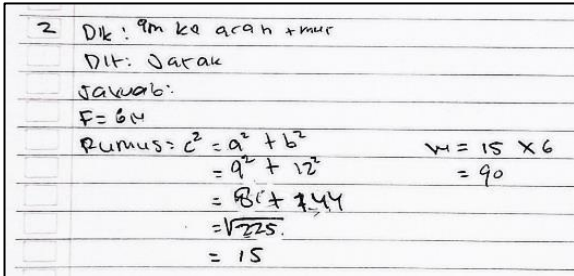 2 Dik : 9m ke arah timur
Dit : Jarak
Jawab :
F = 6N
Rumus = c² = a² + b²
= 9² + 12²
= 81 + 144
= √225.
= 15
W = 15 × 6
= 90